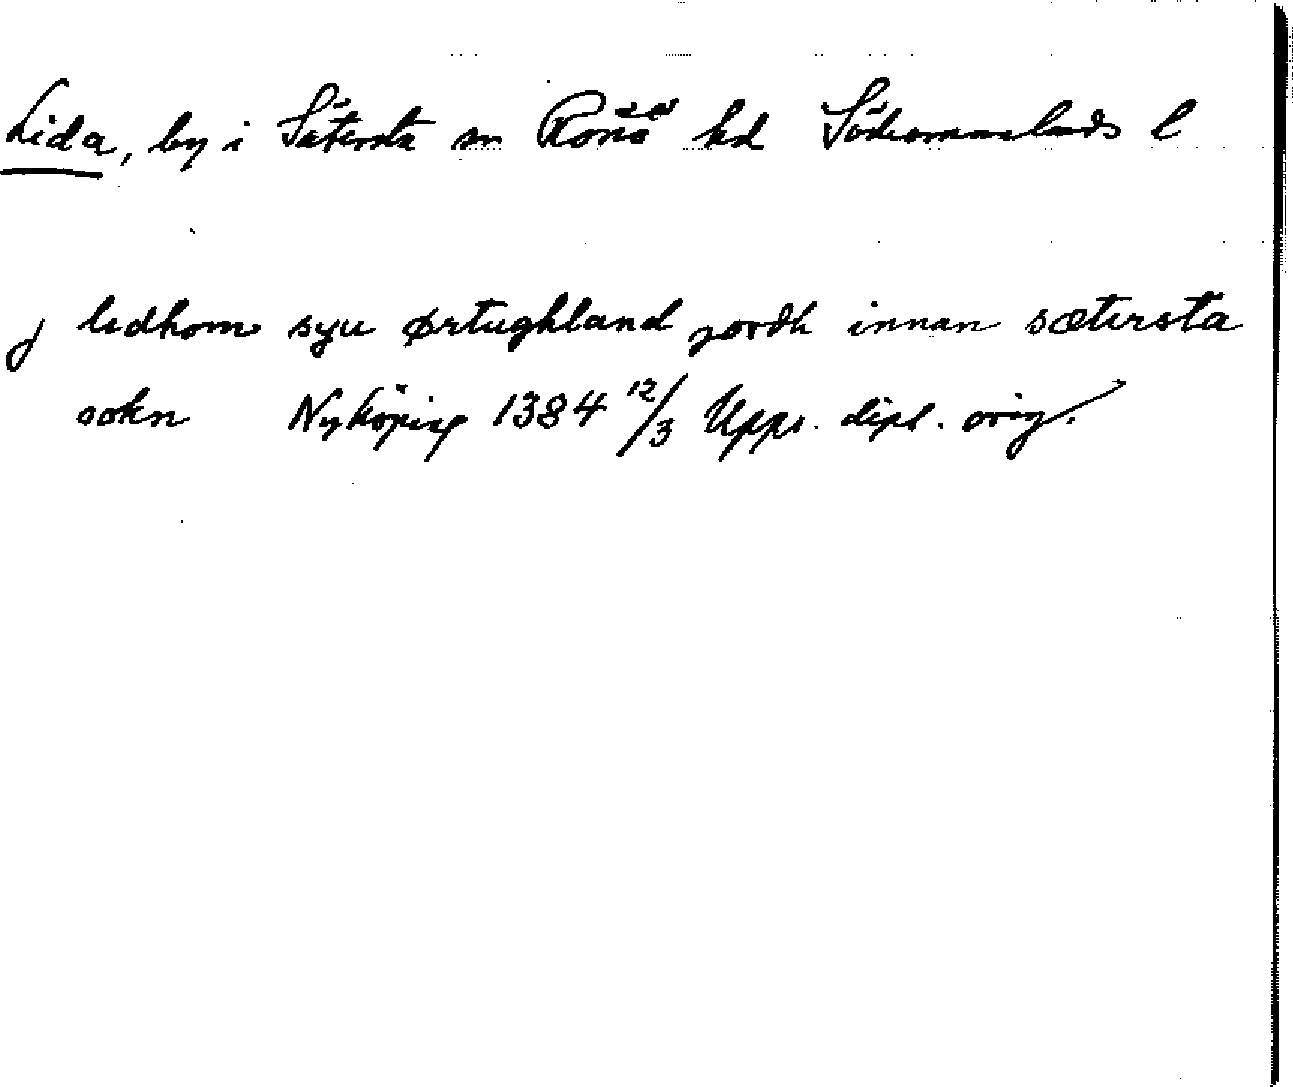 Lida, by i Sätersta sn Rönö hd Södermanlands l
j ledhom syu ørtughland jordh innan sætersta
sokn Nyköping 1384 12/3 Upps. dipl. orig.